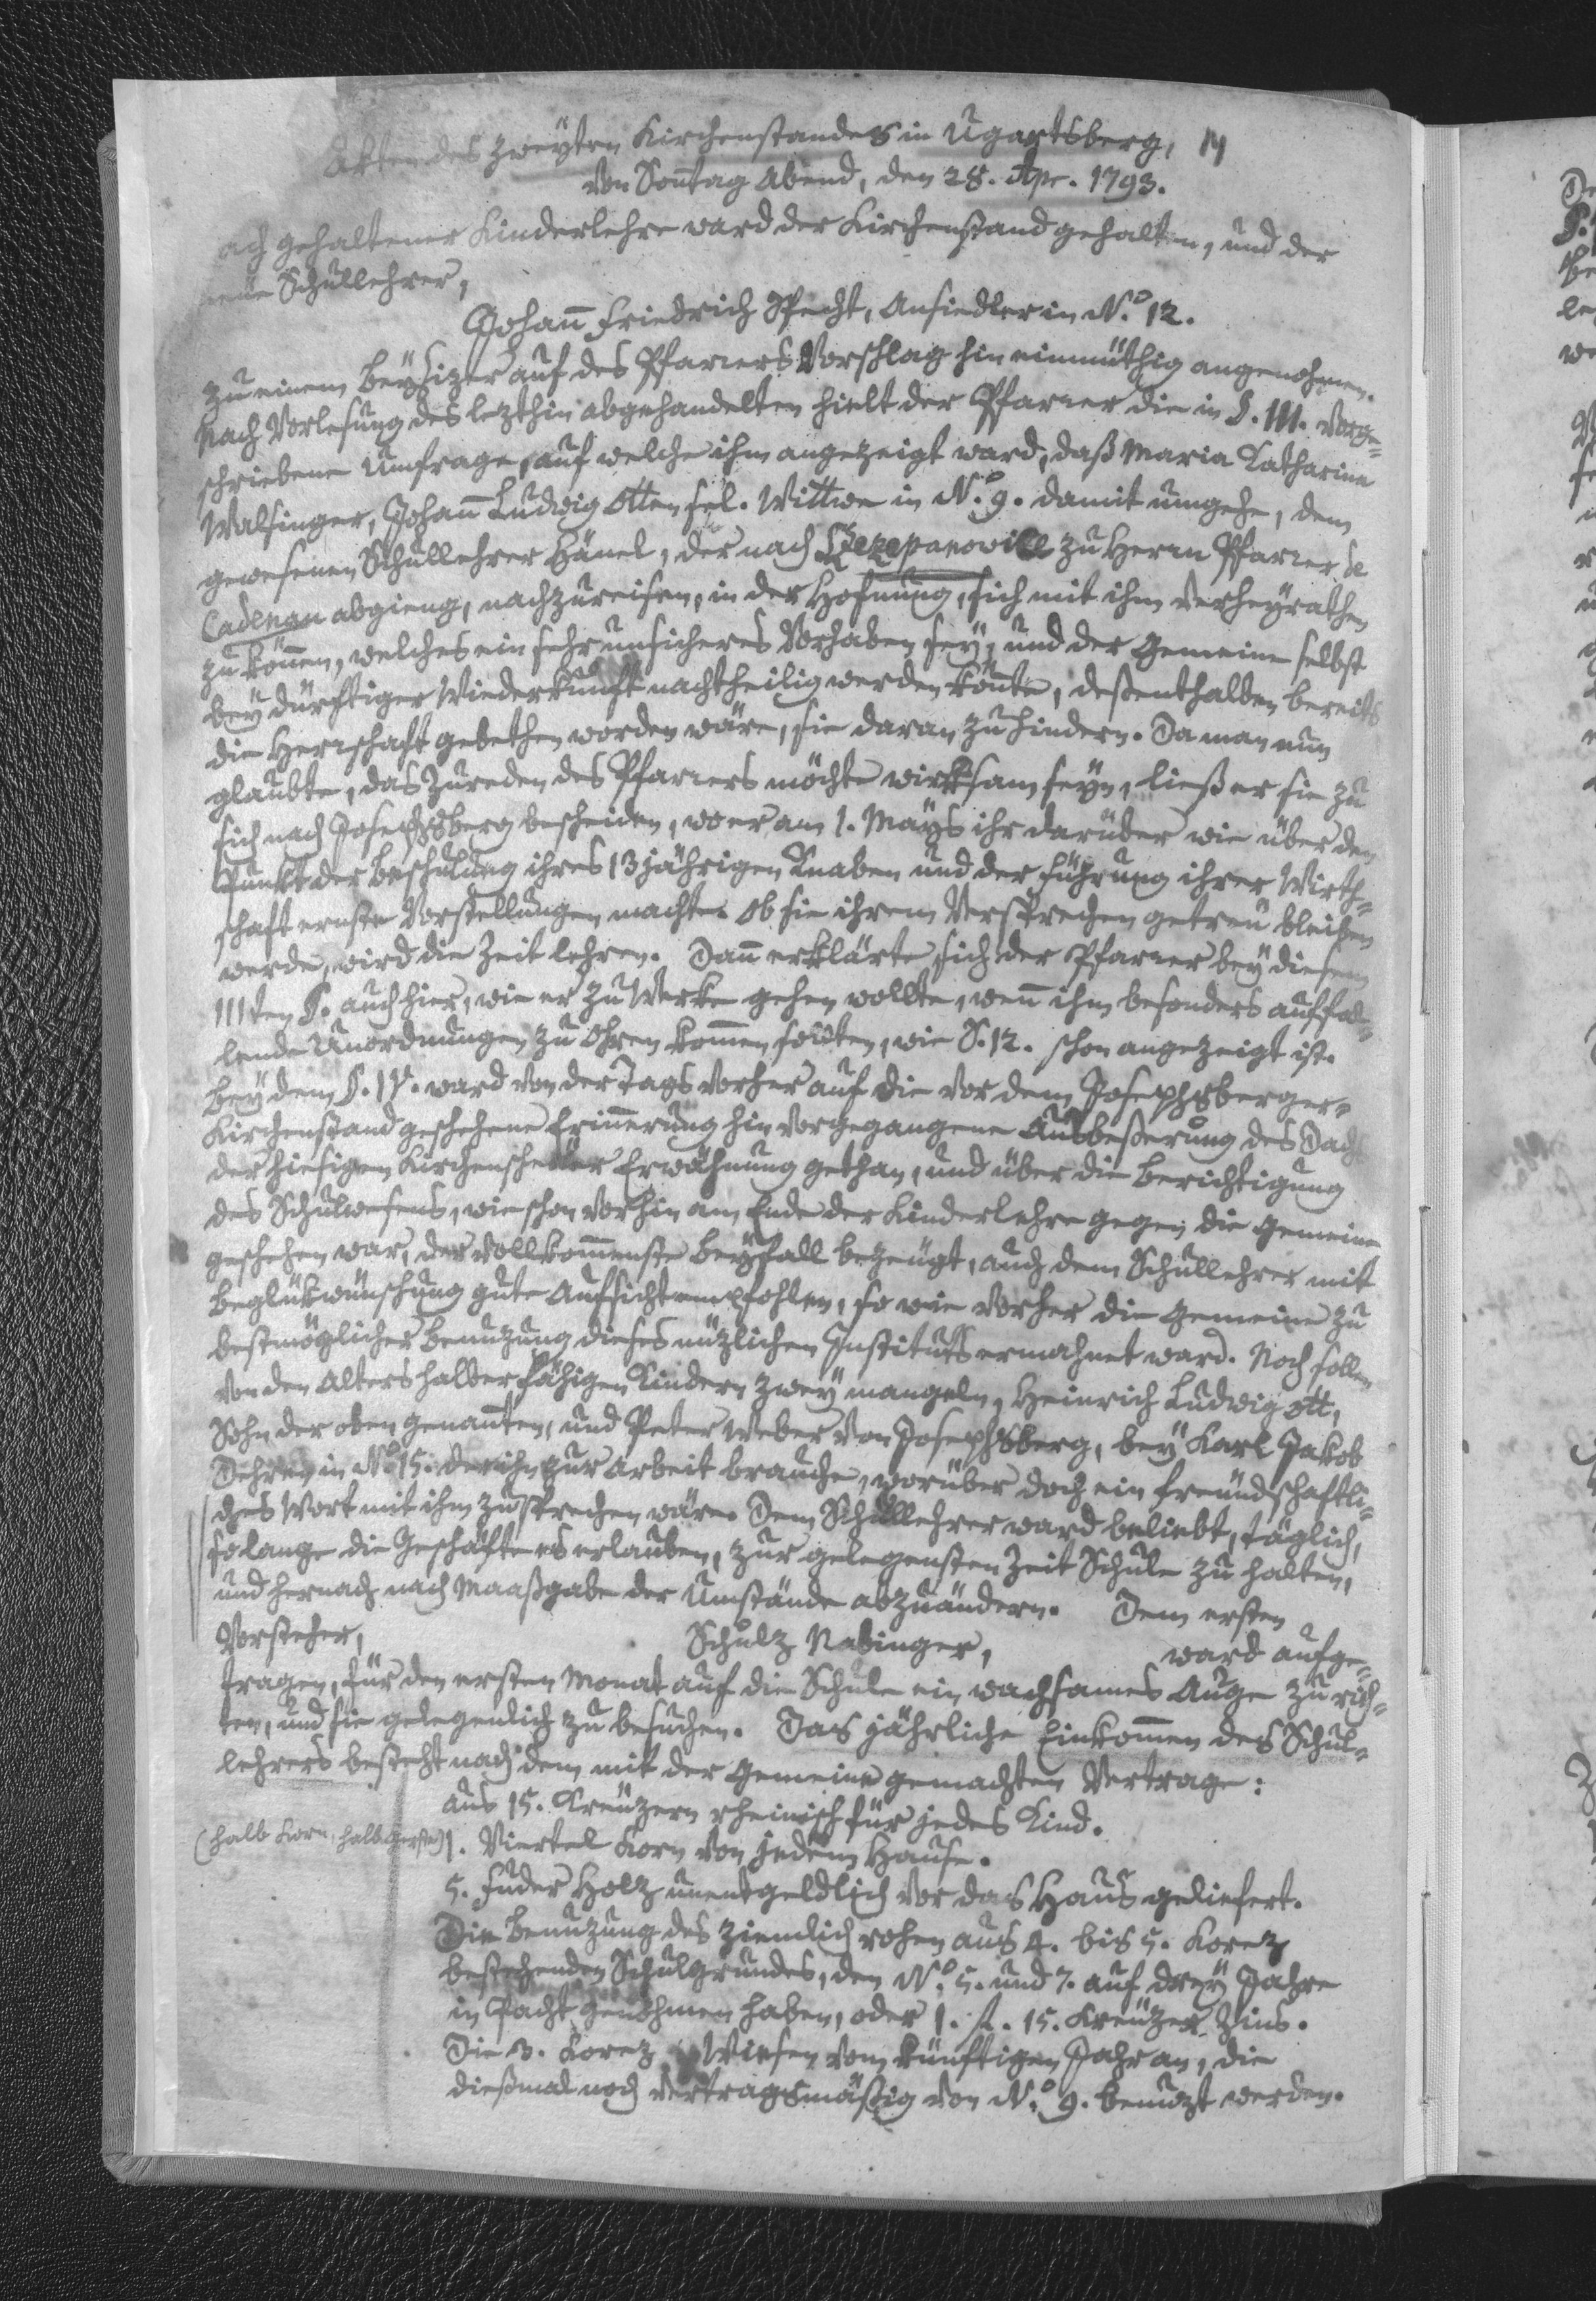 Akten des zweyten Kirchenstandes in Ugartsberg, 14
von Soñtag Abend, den 28. Apr. 1793.
ach gehaltener Kinderlehre ward der Kirchenstand gehalten, und der
neue Schullehrer,
Johañ Friedrich Specht, Ansiedler in N.º 12.
zu einem Beysizer auf des Pfarrers Vorschlag hin einmüthig angenohmen.
Nach Vorlesung des lezthin abgehandelten hielt der Pfarrer die in §. III. vorge=
schriebene Umfrage, auf welche ihm angezeigt ward, daß Maria Katharina
Walsinger, Johañ Ludwig Otten sel. Wittwe in N.º 9. damit umgehe, dem
gewesenen Schullehrer Hänel, der nach Szczepanowice zu Herrn Pfarrer de
Cadenau abgieng, nachzureisen, in der Hofnung, sich mit ihm verheyrathen
zu köñen, welches ein sehr unsicheres Vorhaben sey, und der Gemeine selbst
bey dürftiger Wiederkunft nachtheilig werden köñte, deßenthalben bereits
die Herrschaft gebethen worden wäre, sie daran zu hindern. Da man nun
glaubte, das Zureden des Pfarrers möchte wirksam seyn, ließ er sie zu
sich nach Josephsberg bescheiden, wo er am 1. Mays ihr darüber wie über den
Punkt der Beschulung ihres 13jährigen Knaben und der Führung ihrer Wirth=
schaft ernste Vorstellungen machte. Ob sie ihrem Versprechen getreu bleiben
werde, wird die Zeit lehren. Dañ erklärte sich der Pfarrer bey diesem
IIIten §. auch hier, wie er zu Werke gehen wollte, weñ ihm besonders auffal=
lende Unordnungen zu Ohren kom̃en sollten, wie S. 12. schon angezeigt ist.
Bey dem §. IV. ward von der Tags vorher auf die vor dem Josephsberger=
Kirchenstand geschehene Eriñerung hin vorgegangene Ausbeßerung des Dachs
der hiesigen Kirchenscheuer Erwähnung gethan, und über die Berichtigung
des Schulwesens, wie schon vorhin am Ende der Kinderlehre gegen die Gemeine
geschehen war, der vollkom̃enste Beyfall bezeugt, auch dem Schullehrer mit
Beglükwünschung gute Aufsicht empfohlen, so wie vorher die Gemeine zu
bestmöglicher Benuzung dieses nüzlichen Instituts ermahnet ward. Noch sollen
von den Alters halber fähigen Kindern zwey mangeln, Heinrich Ludwig Ott,
Sohn der oben genañten, und Peter Weber von Josephsberg, bey Karl Jakob
in N.º 15. der ihn zur Arbeit brauche, worüber doch ein freundschaftli=
ches Wort mit ihm zu sprechen wäre. Dem Schullehrer ward beliebt, täglich,
so lange die Geschäfte es erlauben, zur gelegensten Zeit Schule zu halten,
und hernach nach Maaßgabe der Umstände abzuändern. Dem ersten
Vorsteher, Schulz Nabinger, ward aufge=
tragen, für den ersten Monat auf die Schule ein wachsames Auge zu rich=
ten, und sie gelegenlich zu besuchen. Das jährliche Einkom̃en des Schul=
lehrers besteht nach dem mit der Gemeine gemachten Vertrage:
aus 15. Kreuzern rheinisch für jedes Kind.
(halb Korn, halb Gerste) 1. Viertel Korn von jedem Hause.
5. Fuder Holz unentgeldlich vor das Haus geliefert.
Die Benuzung des ziemlich rohen aus 4. bis 5. Korez
bestehenden Schulgrundes, den N.º 5. und 7. auf drey Jahre
in Pacht genohmen haben, oder 1. fl. 15. Kreuzer Zins.
Die 3. Korez Wiesen vom künftigen Jahr an, die
dießmal noch vertragsmäßig von N.º 9. benuzt werden.